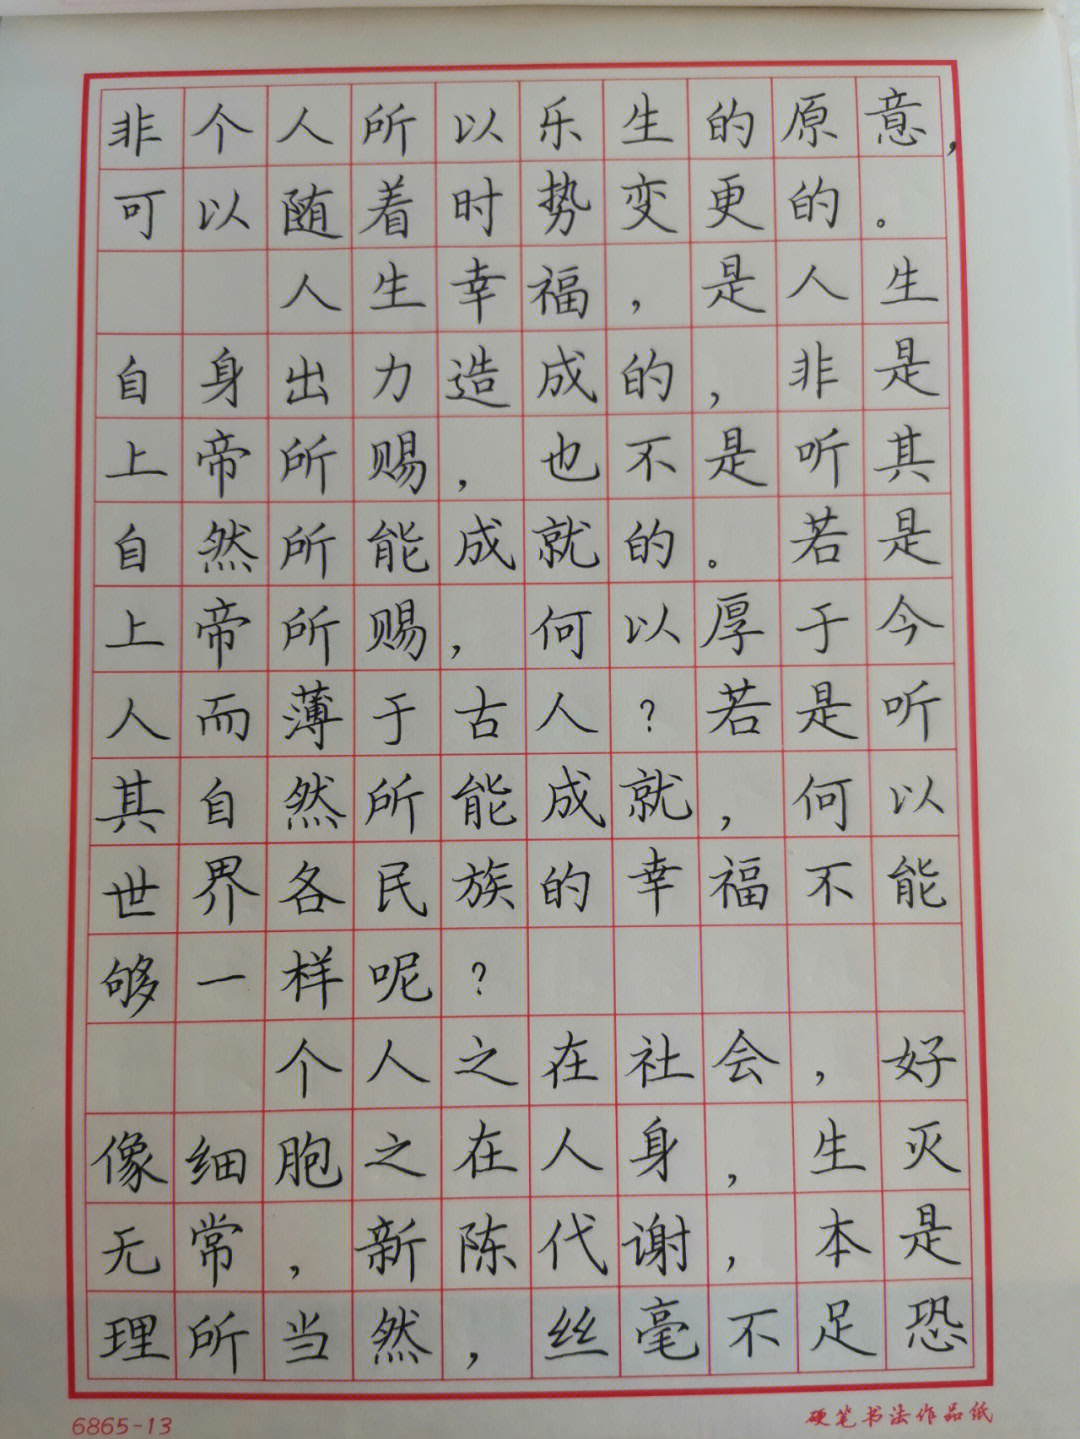 非个人所以乐生的原意，
可以随着时势变更的。
人生幸福，是人生
自身出力造成的，非是
上帝所赐，也不是听其
自然所能成就的。若是
上帝所赐，何以厚于今
人而薄于古人？若是听
其自然所能成就，何以
世界各民族的幸福不能
够一样呢？
个人之在社会，好
像细胞之在人身，生灭
无常，新陈代谢，本是
理所当然，丝毫不足恐
6865-13
硬笔书法作品纸